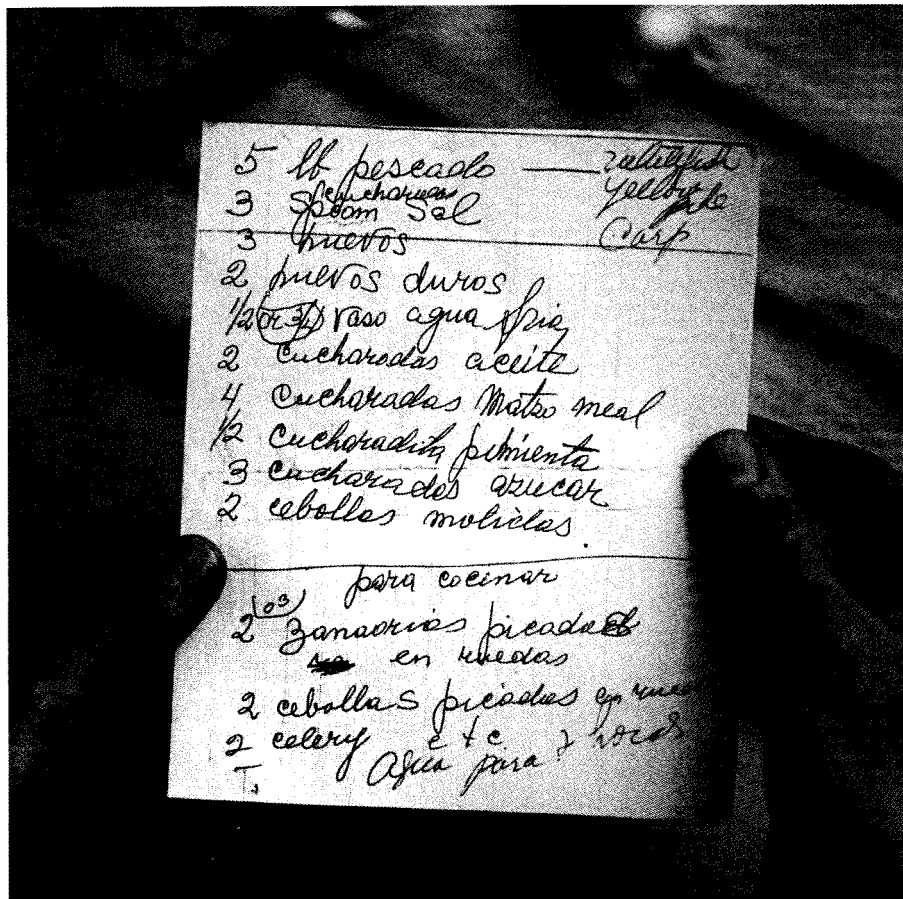 5 lb pescado — whitefish
yellow pike
3 Spoom cucharadas Sal
Carp
3 huevos
2 huevos duros
1/2 (or 3/4) vaso agua fria
2 cucharadas aceite
4 cucharadas Matzo meal
1/2 cucharadita pimienta
3 cucharadas azucar
2 cebollas molidas.
para cocinar
2 (o 3) Zanaorias picadas
en ruedas
2 cebollas picadas en rued
2 celery etc
Agua para 2 horas